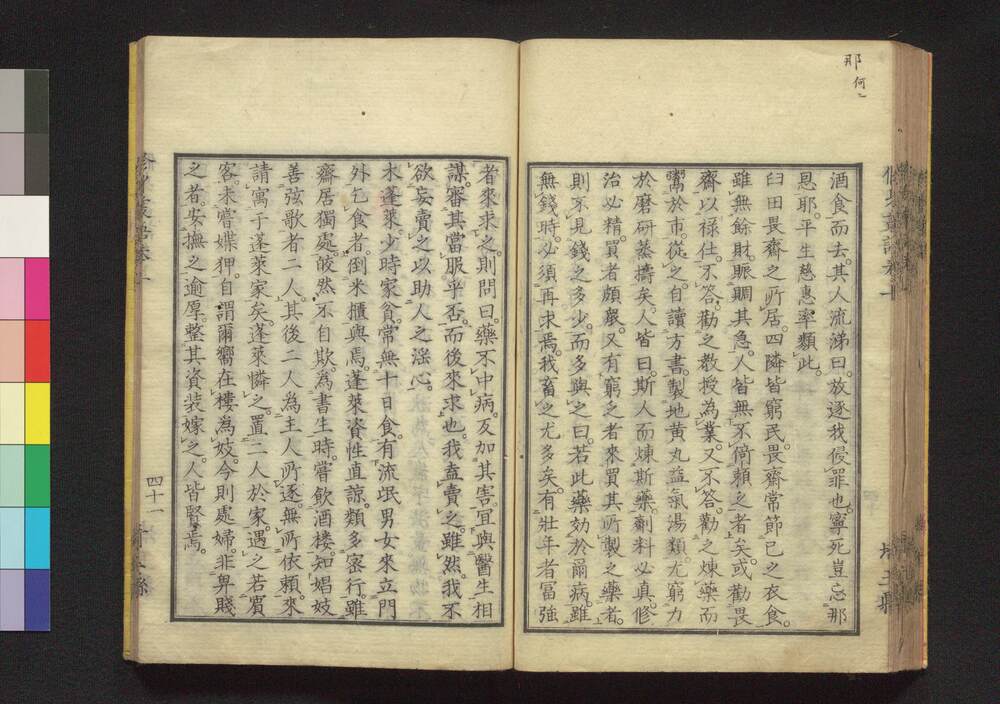 那 何〻
酒食而去。其人流涕曰。放逐我侵罪也。寧死豈忘那
恩耶。平生慈惠率類此。
臼田畏齋之所居。四隣皆窮民。畏齋常節己之衣食。
雖無餘財。賑賙其急。人皆無不倚賴之者矣。或勸畏
齋以祿仕。不答。勸之教授為業。又不答。勸之煉藥而
鬻於市。從之。自讀方書。製地黄丸益氣湯類。尤窮力
於磨研蒸擣矣。人皆曰。斯人而煉斯藥。劑料必真。修
治必精。買者頗衆。又有窮乏者來買其所製之藥者。
則不見錢之多少。而多與之曰。若此藥効於爾病。雖
無錢時。必須再求焉。我畜之尤多矣。有壯年者冨強
者來求之。則問曰。藥不中病。反加其害。宜與醫生相
謀。審其當服乎否。而後來求也。我盍賣之。雖然。我不
欲妄賣之以助人之淫心。
木蓬萊。少時家貧。常無十日食。有流氓男女來立門
外乞食者。倒米櫃與焉。蓬萊資性直諒。類多密行。雖
齋居獨處。皎然不自欺。為書生時。嘗飲酒楼。知娼妓
善弦歌者二人。其後二人為主人所逐。無所依賴。來
請寓于蓬萊家矣。蓬萊憐之。置二人於家。遇之若賓
客。未嘗媟狎。自謂爾嚮在樓為妓。今則處婦。非卑賤
之者。安撫之逾厚。整其資装嫁之。人皆賢焉。
四十一